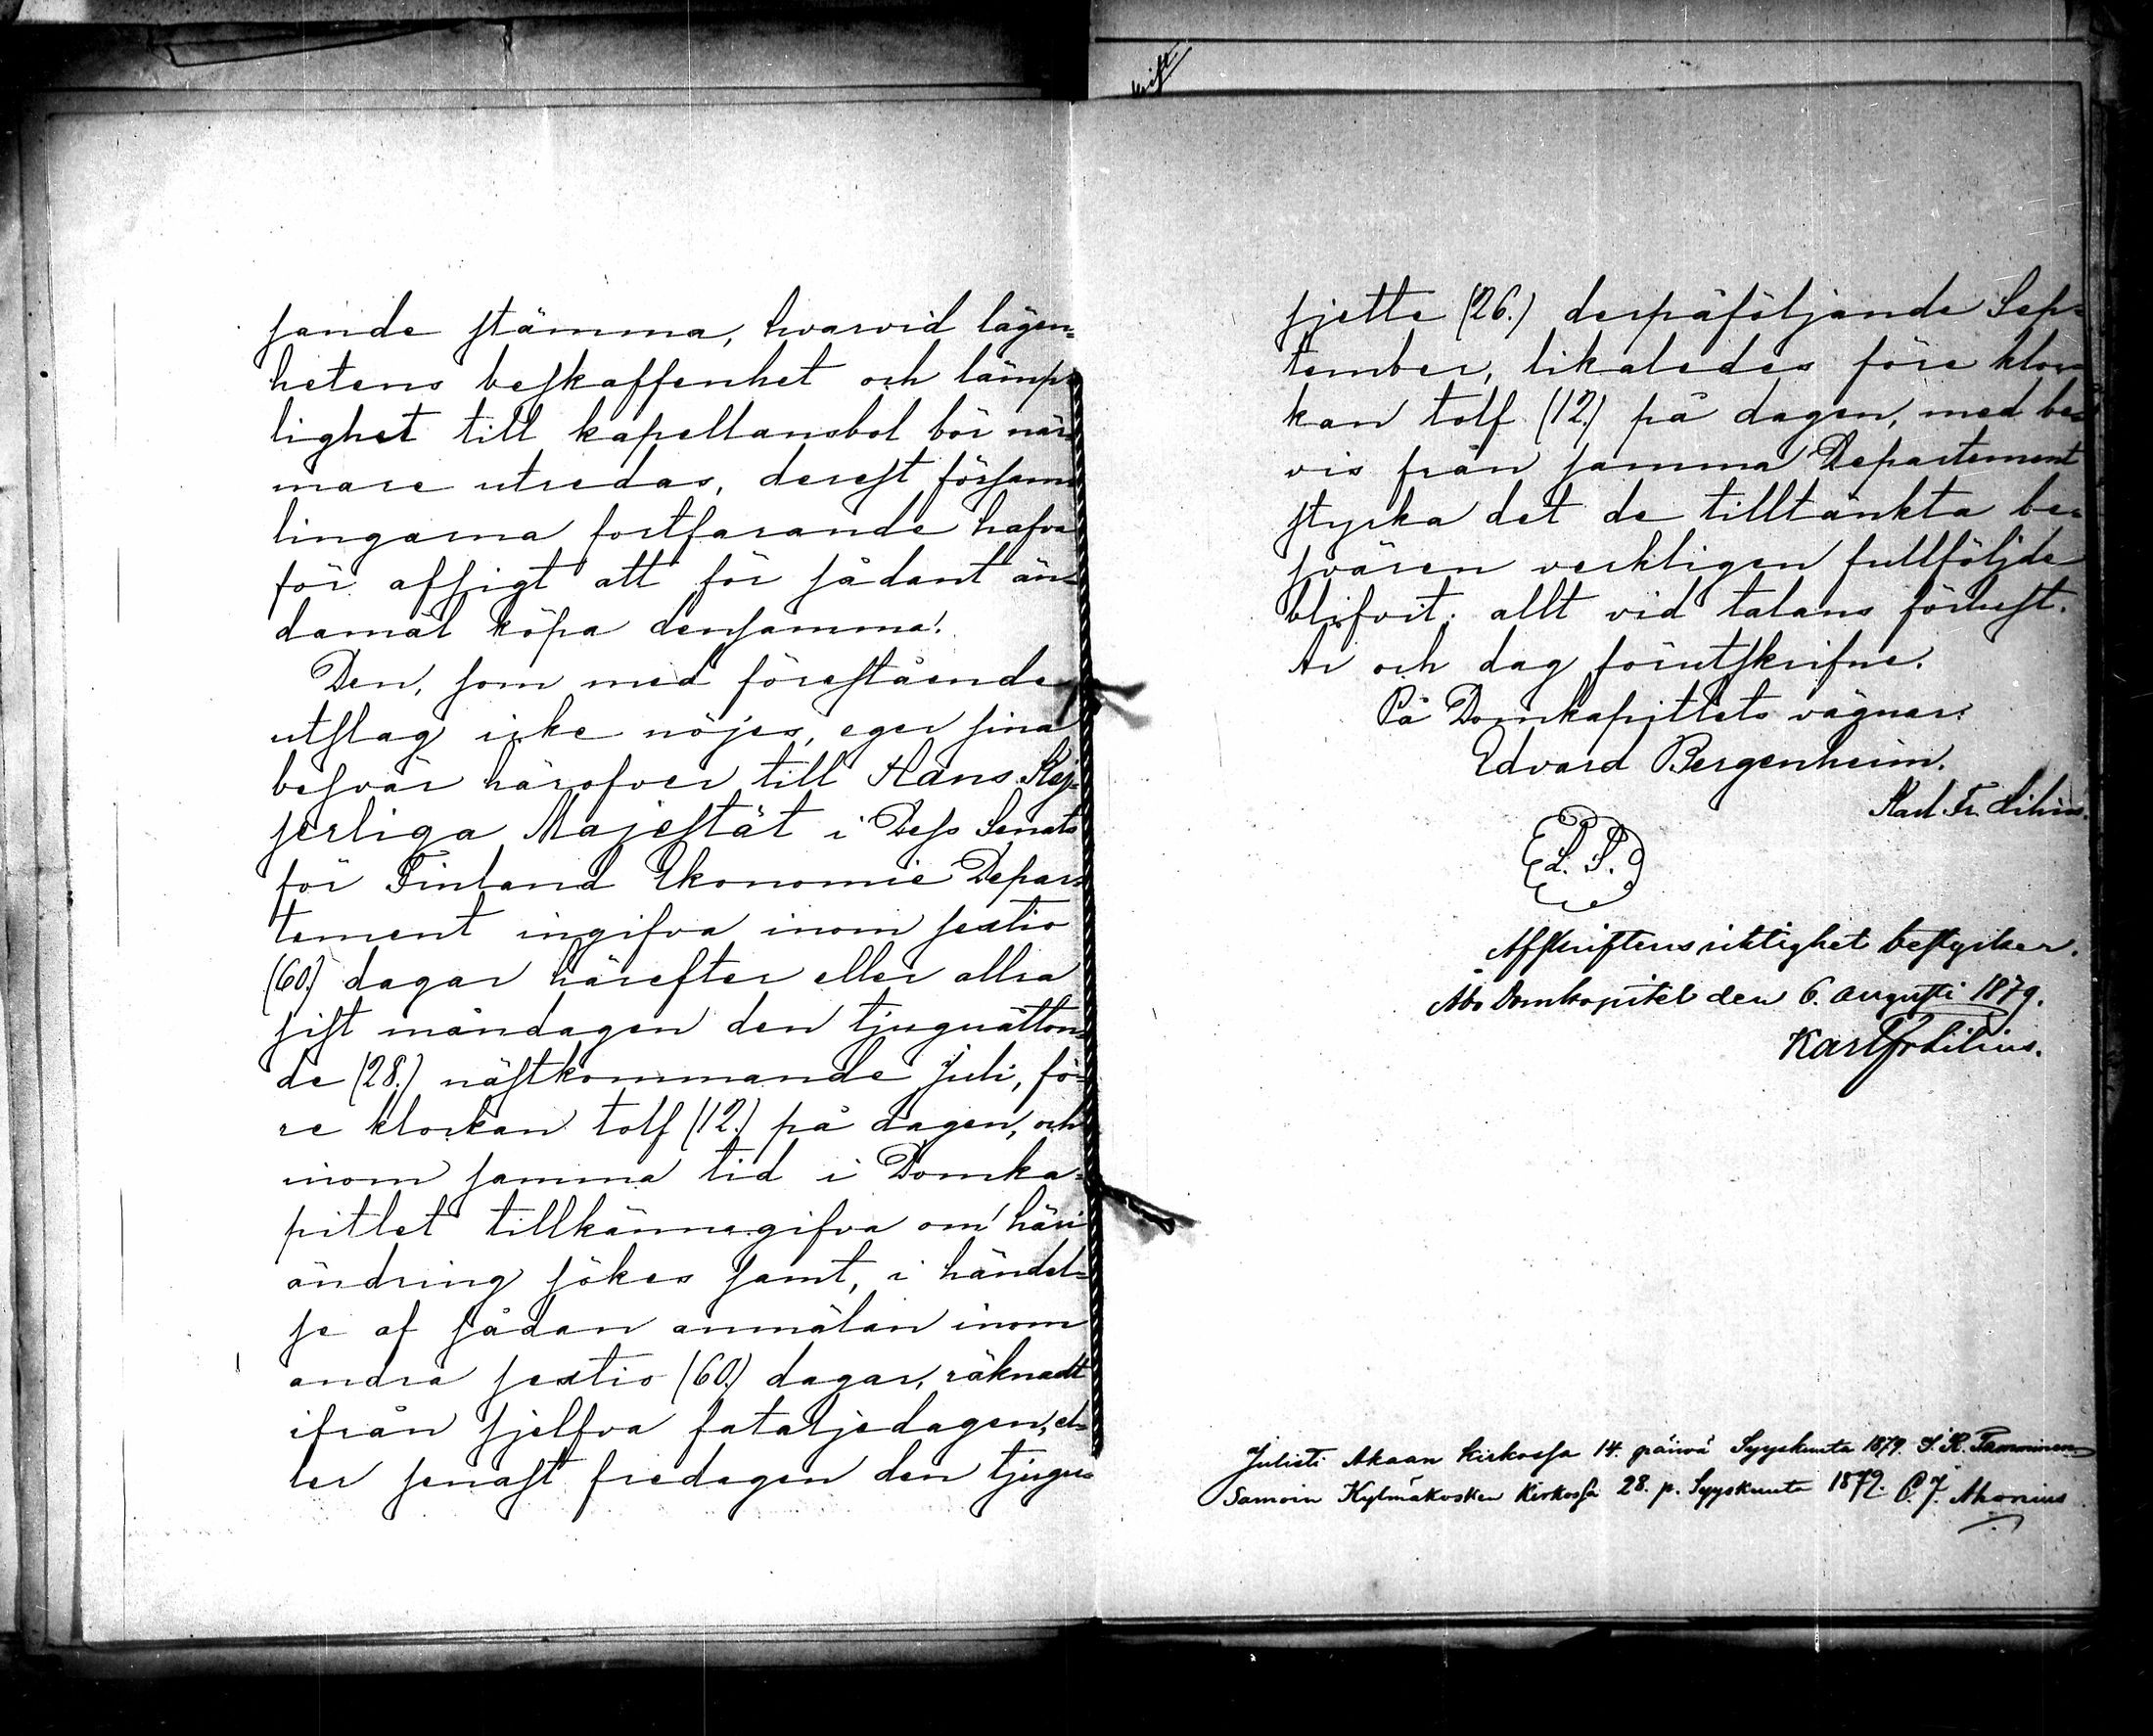 sande stämma, hvarvid lägen=
hetens beskaffenhet och lämp=
lighet till kapellansbol bör när=
mare utredas, derest försam=
lingarna fortfarande hafva
för afsigt att för sådant än=
damål köpa densamma.
Den, som med förestående
utslag icke nöjes, eger sina
besvär häröfver till Hans Kej=
serliga Majestät i Dess Senats
för Finland Ekonomie Depar=
tement ingifva inom sextio
(60.) dagar härefter eller allra
sist måndagen den tjuguåtton=
de (28.) nästkommande Juli, fö=
re klockan tolf (12.) på dagen, och
inom samma tid i Domka=
pitlet tillkännagifva om häri
ändring sökes samt, i händel=
se af sådan anmälan inom
andra sextio (60.) dagar, räknadt
ifrån sjelfva fataljedagen, el=
ler senast fredagen den tjugu=
krift
sjette (26.) derpåföljande Sep=
tember, likaledes före kloc=
kan tolf (12.) på dagen, med be=
vis från samma Departement
styrka det de tilltänkta be=
svären verkligen fullföljde
blifvit; allt vid talans förlust.
År och dag förutskrifne.
På Domkapitlets vägnar:
Edvard Bergenheim.
Karl Fr. Lilius.
L. S.
Afskriftens riktighet bestyrker.
Åbo Domkapitel den 6. Augusti 1879.
Karl Fr Lilius.
Julisti Akaan kirkossa 14. päivä Syyskuuta 1879. J. K. Tamminen
Samoin Kylmäkosken kirkossa 28. p. Syyskuuta 1879. C. J. Ahonius